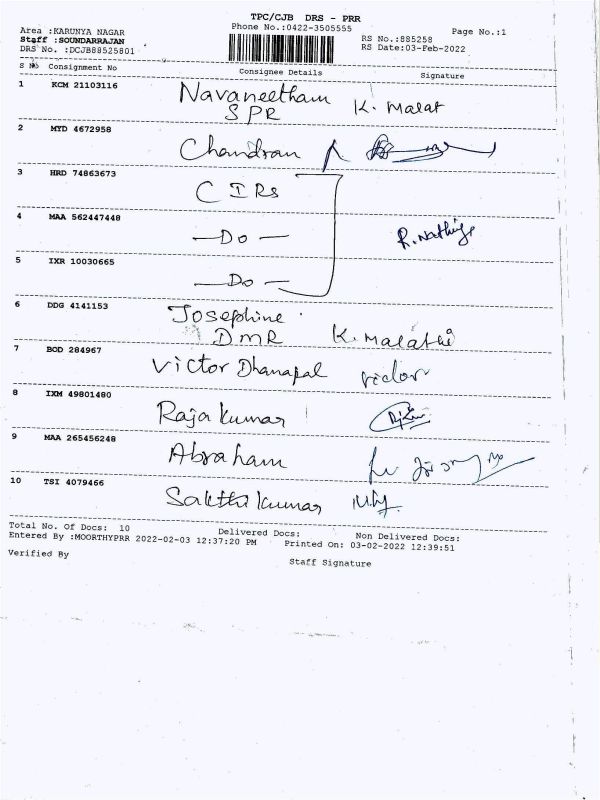 TPC/CJB DRS - PRR
Phone No.:0422-3505555
Area :KARUNYA NAGAR
Staff :SOUNDARRAJAN
DRS No. :DCJB88525801
RS No.:885258
RS Date:03-Feb-2022
Page No.:1
S No Consignment No Consignee Details Signature
1 KCM 21103116 Navaneetham K. Malat
SPR
2 MYD 4672958 Chandran
3 HRD 74863673 C IRs
4 MAA 562447448 —Do—
5 IXR 10030665 —Do—
6 DDG 4141153 Josephine
DMR K. Malathi
7 BOD 284967 Victor Dhanapal victor
8 IXM 49801480 Rajakumar
9 MAA 265456248 Abraham
10 TSI 4079466 Sakthikumar
Total No. Of Docs: 10 Delivered Docs: Non Delivered Docs:
Entered By :MOORTHYPRR 2022-02-03 12:37:20 PM Printed On: 03-02-2022 12:39:51
Verified By Staff Signature